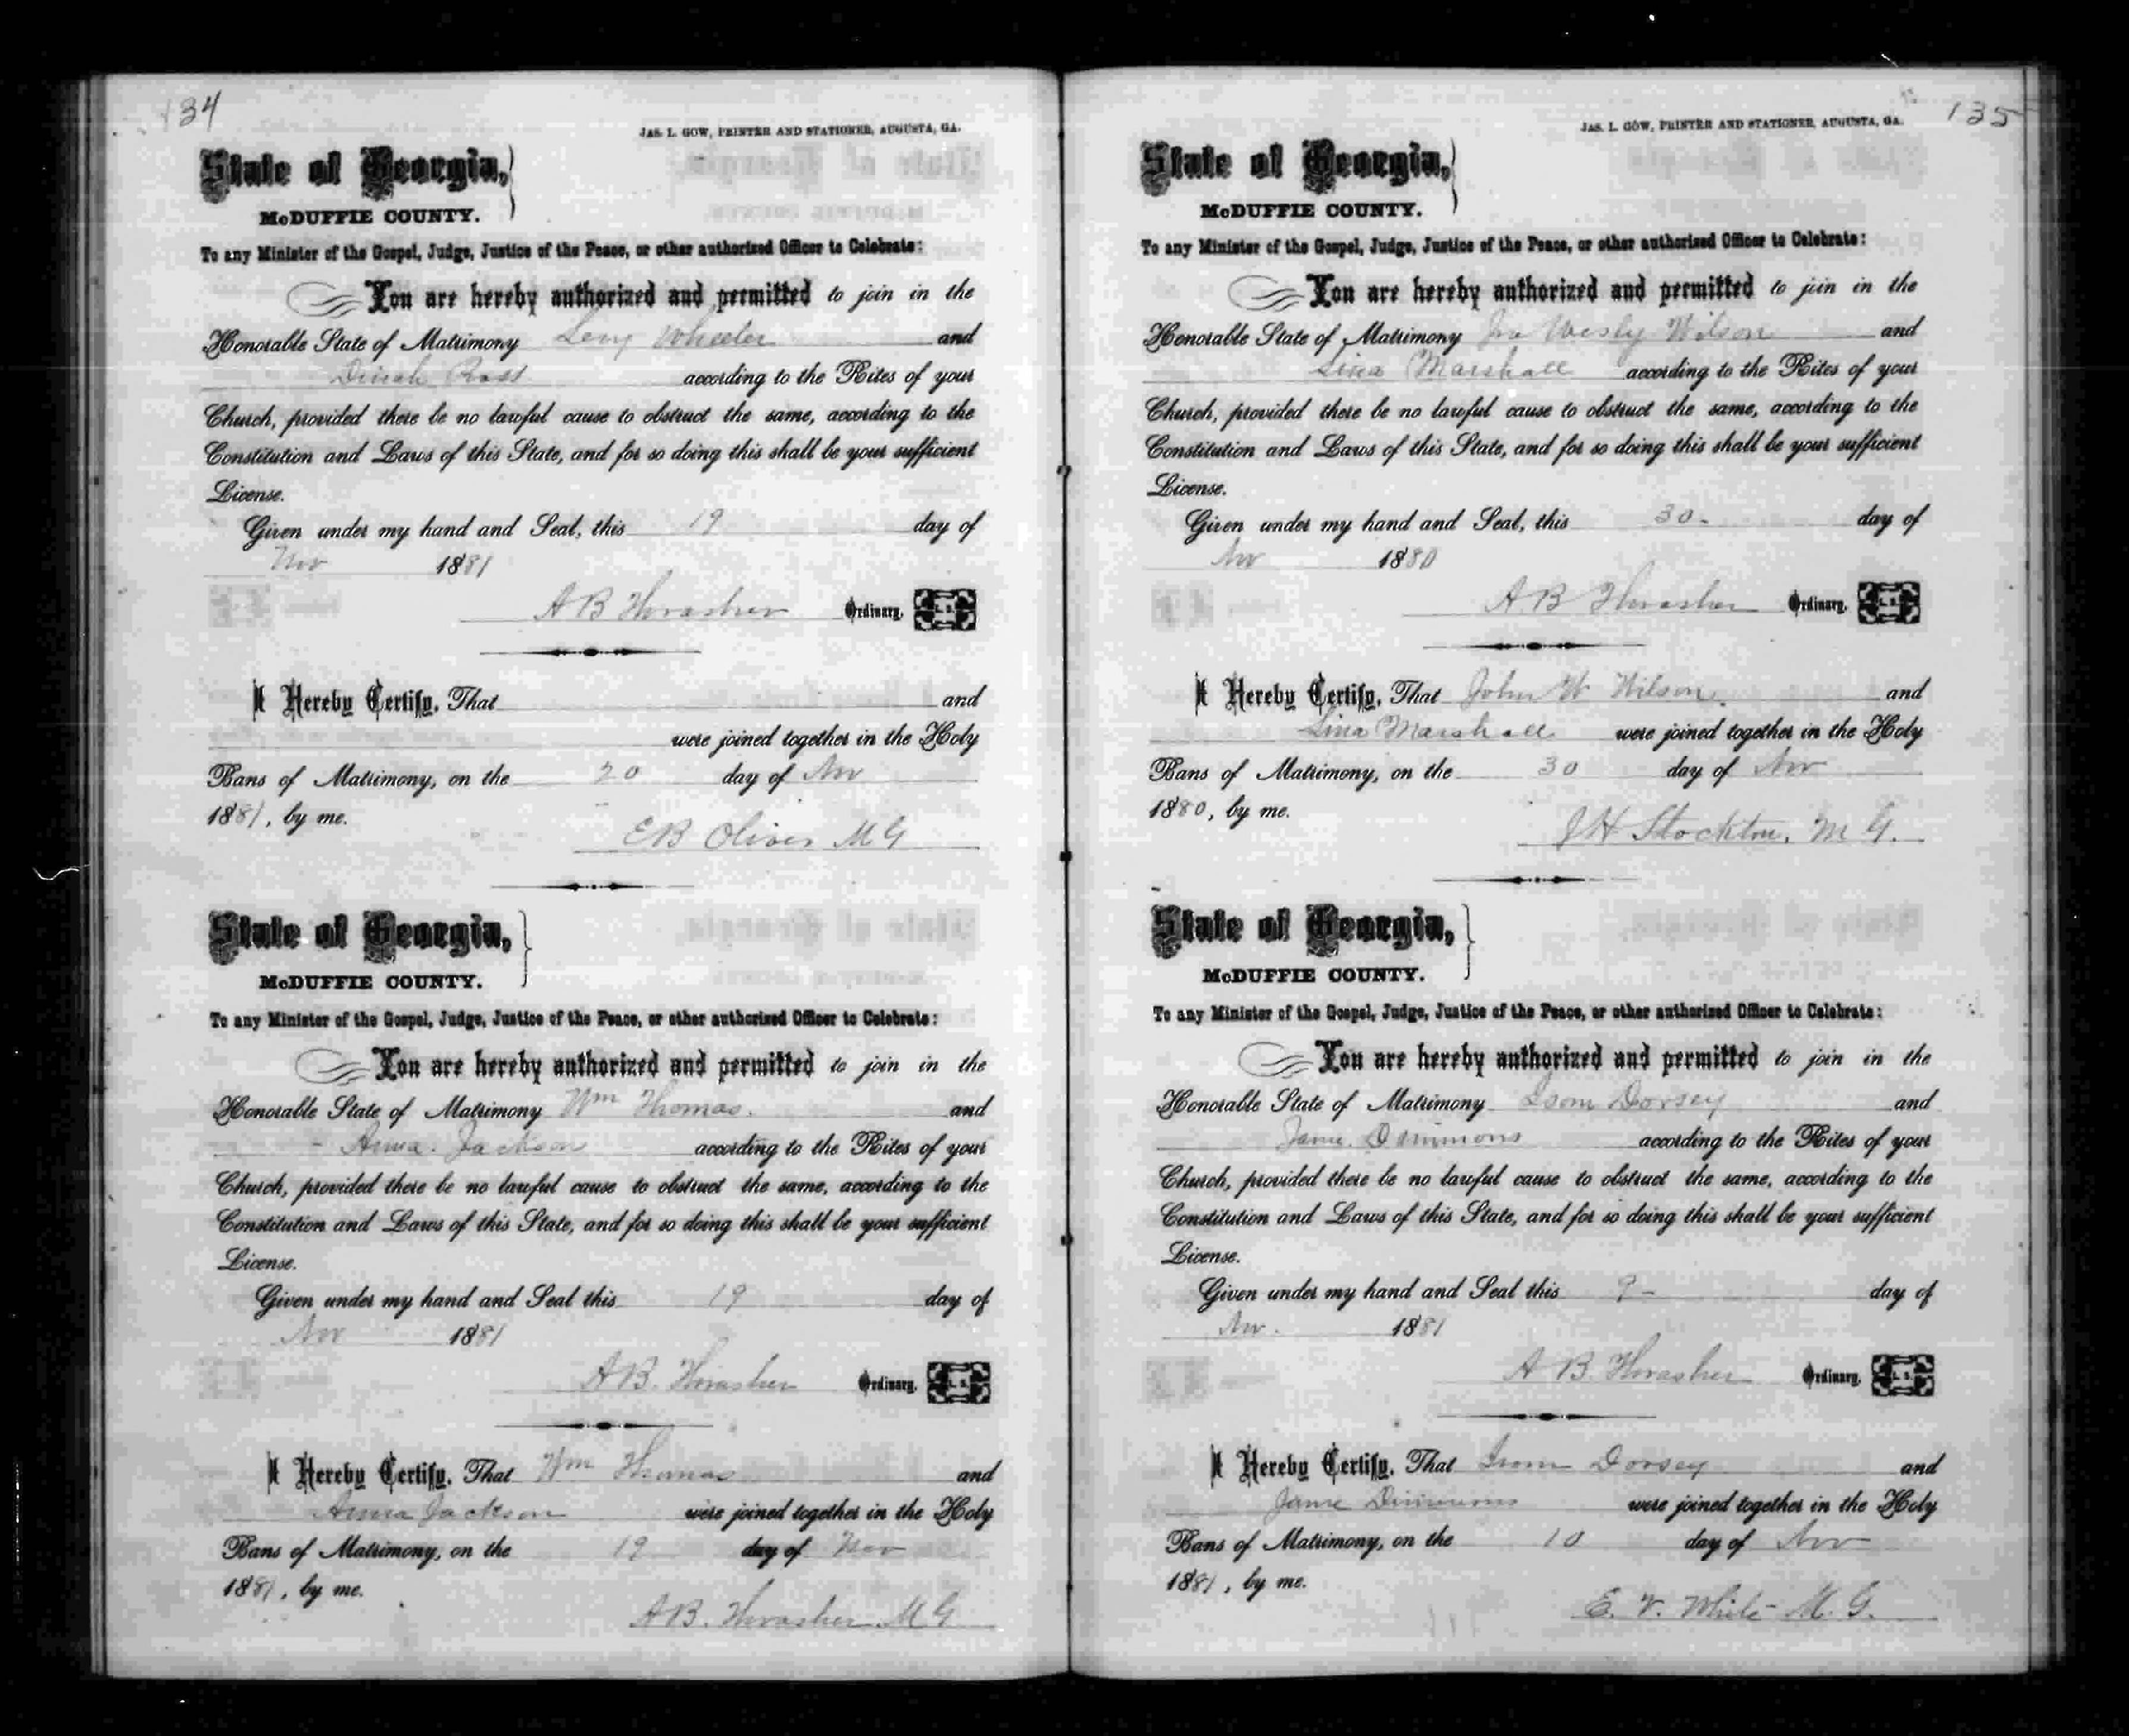 134
JAS. L. GOW, PRINTER AND STATIONER, AUGUSTA, GA.
State of Georgia,
McDUFFIE COUNTY.
To any Minister of the Gospel, Judge, Justice of the Peace, or other authorized Officer to Celebrate:
You are hereby authorized and permitted to join in the
Honorable State of Matrimony Wheeler and
Dinah Ross according to the Rites of your
Church, provided there be no lawful cause to obstruct the same, according to the
Constitution and Laws of this State, and for so doing this shall be your sufficient
License.
Given under my hand and Seal, this 19 day of
Nov 1881
A B Thrasher Ordinary, L. S.
I Hereby Certify, That and
were joined together in the Holy
Bans of Matrimony, on the 20 day of Nov
1881, by me.
E B Oliver M G
State of Georgia,
McDUFFIE COUNTY.
To any Minister of the Gospel, Judge, Justice of the Peace, or other authorized Officer to Celebrate:
You are hereby authorized and permitted to join in the
Honorable State of Matrimony Wm Thomas. and
Anna Jackson according to the Rites of your
Church, provided there be no lawful cause to obstruct the same, according to the
Constitution and Laws of this State, and for so doing this shall be your sufficient
License.
Given under my hand and Seal this 19 day of
Nov 1881
A B. Thrasher Ordinary, L. S.
I Hereby Certify, That Wm Thomas and
Anna Jackson were joined together in the Holy
Bans of Matrimony, on the 19 day of Nov
1881, by me.
A B. Thrasher M G
135
JAS. L. GOW, PRINTER AND STATIONER, AUGUSTA, GA.
State of Georgia,
McDUFFIE COUNTY.
To any Minister of the Gospel, Judge, Justice of the Peace, or other authorized Officer to Celebrate:
You are hereby authorized and permitted to join in the
Honorable State of Matrimony Jno Wesly Wilson and
Lina Marshall according to the Rites of your
Church, provided there be no lawful cause to obstruct the same, according to the
Constitution and Laws of this State, and for so doing this shall be your sufficient
License.
Given under my hand and Seal, this 30- day of
Nov 1880
A. B Thrasher Ordinary, L. S.
I Hereby Certify, That John W Wilson. and
Lina Marshall were joined together in the Holy
Bans of Matrimony, on the 30 day of Nov
1880, by me.
J H Stockton, M G.
State of Georgia,
McDUFFIE COUNTY.
To any Minister of the Gospel, Judge, Justice of the Peace, or other authorized Officer to Celebrate:
You are hereby authorized and permitted to join in the
Honorable State of Matrimony Isom Dorsey and
Jane according to the Rites of your
Church, provided there be no lawful cause to obstruct the same, according to the
Constitution and Laws of this State, and for so doing this shall be your sufficient
License.
Given under my hand and Seal this 9- day of
Nov. 1881
A B Thrasher Ordinary, L. S.
I Hereby Certify, That Isom Dorsey and
Jane were joined together in the Holy
Bans of Matrimony, on the 10 day of Nov
1881, by me.
E. V. White M. G.